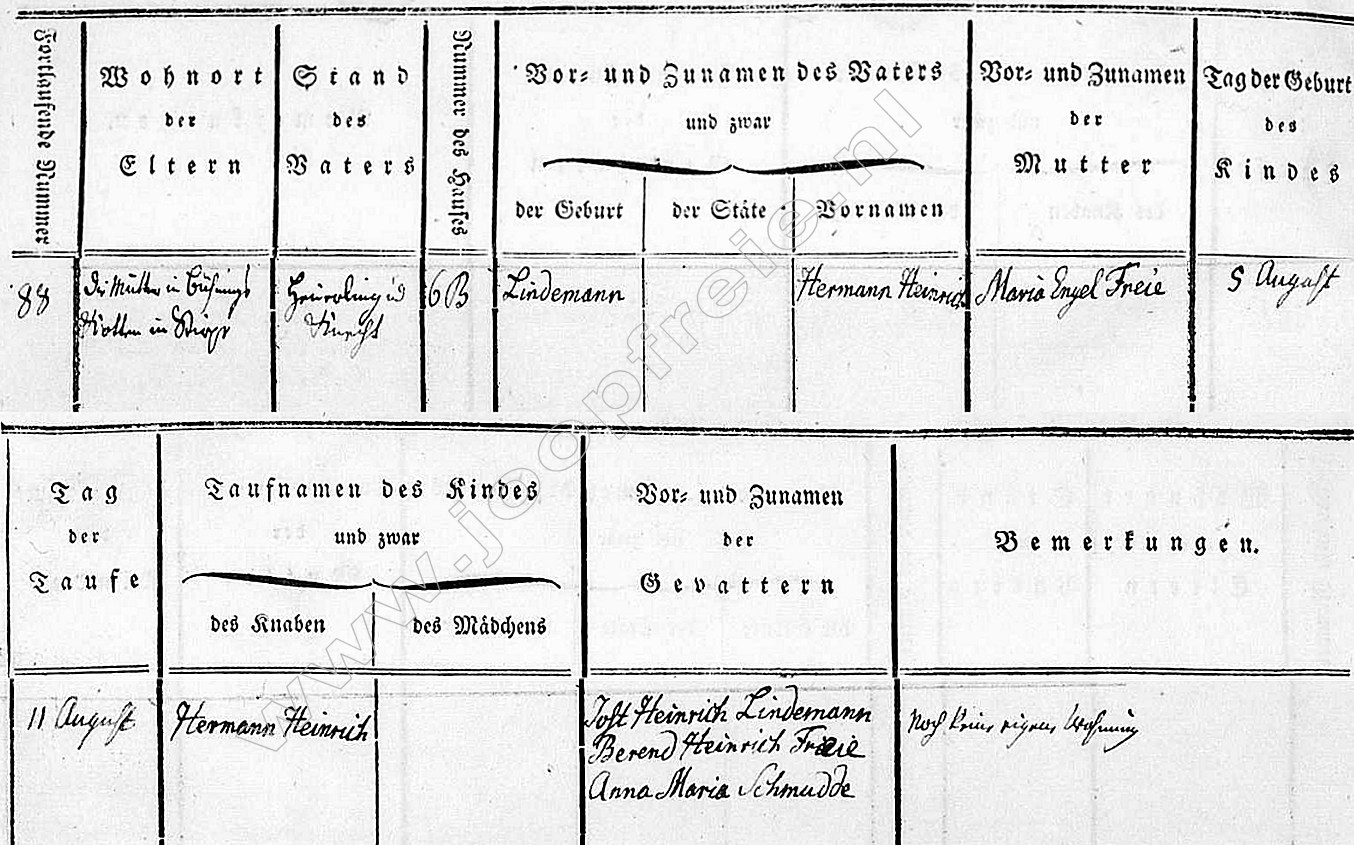 Fortlaufende Nummer
Wohnort
der
Eltern
Stand
des
Vaters
Nummer des Hauses
Vor= und Zunamen des Vaters
und zwar
der Geburt
der Stäte
Vornamen
Vor= und Zunamen
der
Mutter
Tag der Geburt
des
Kindes
88
die Mutter in Bühnings
Kotten in
Heuerling
Knecht
6B
Lindemann
Hermann Heinrich
Maria Engel Freie
5 August
Tag
der
Taufe
Taufnamen des Kindes
und zwar
des Knaben
des Mädchens
Vor= und Zunamen
der
Gevattern
Bemerkungen.
11 August
Hermann Heinrich
Jost Heinrich Lindemann
Berend Heinrich Freie
Anna Maria Schmudde
Noch keine eigene Wohnung
www.joopfreie.nl